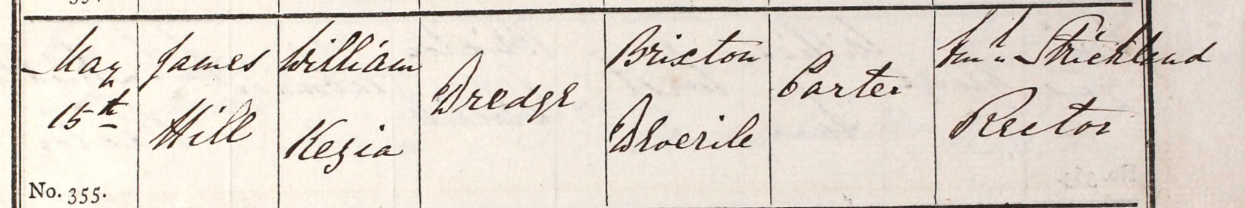 May
15th
James
Hill
William
Kezia
Dredge
Brixton
Deverile
Carter
Strickland
Rector
No. 355.